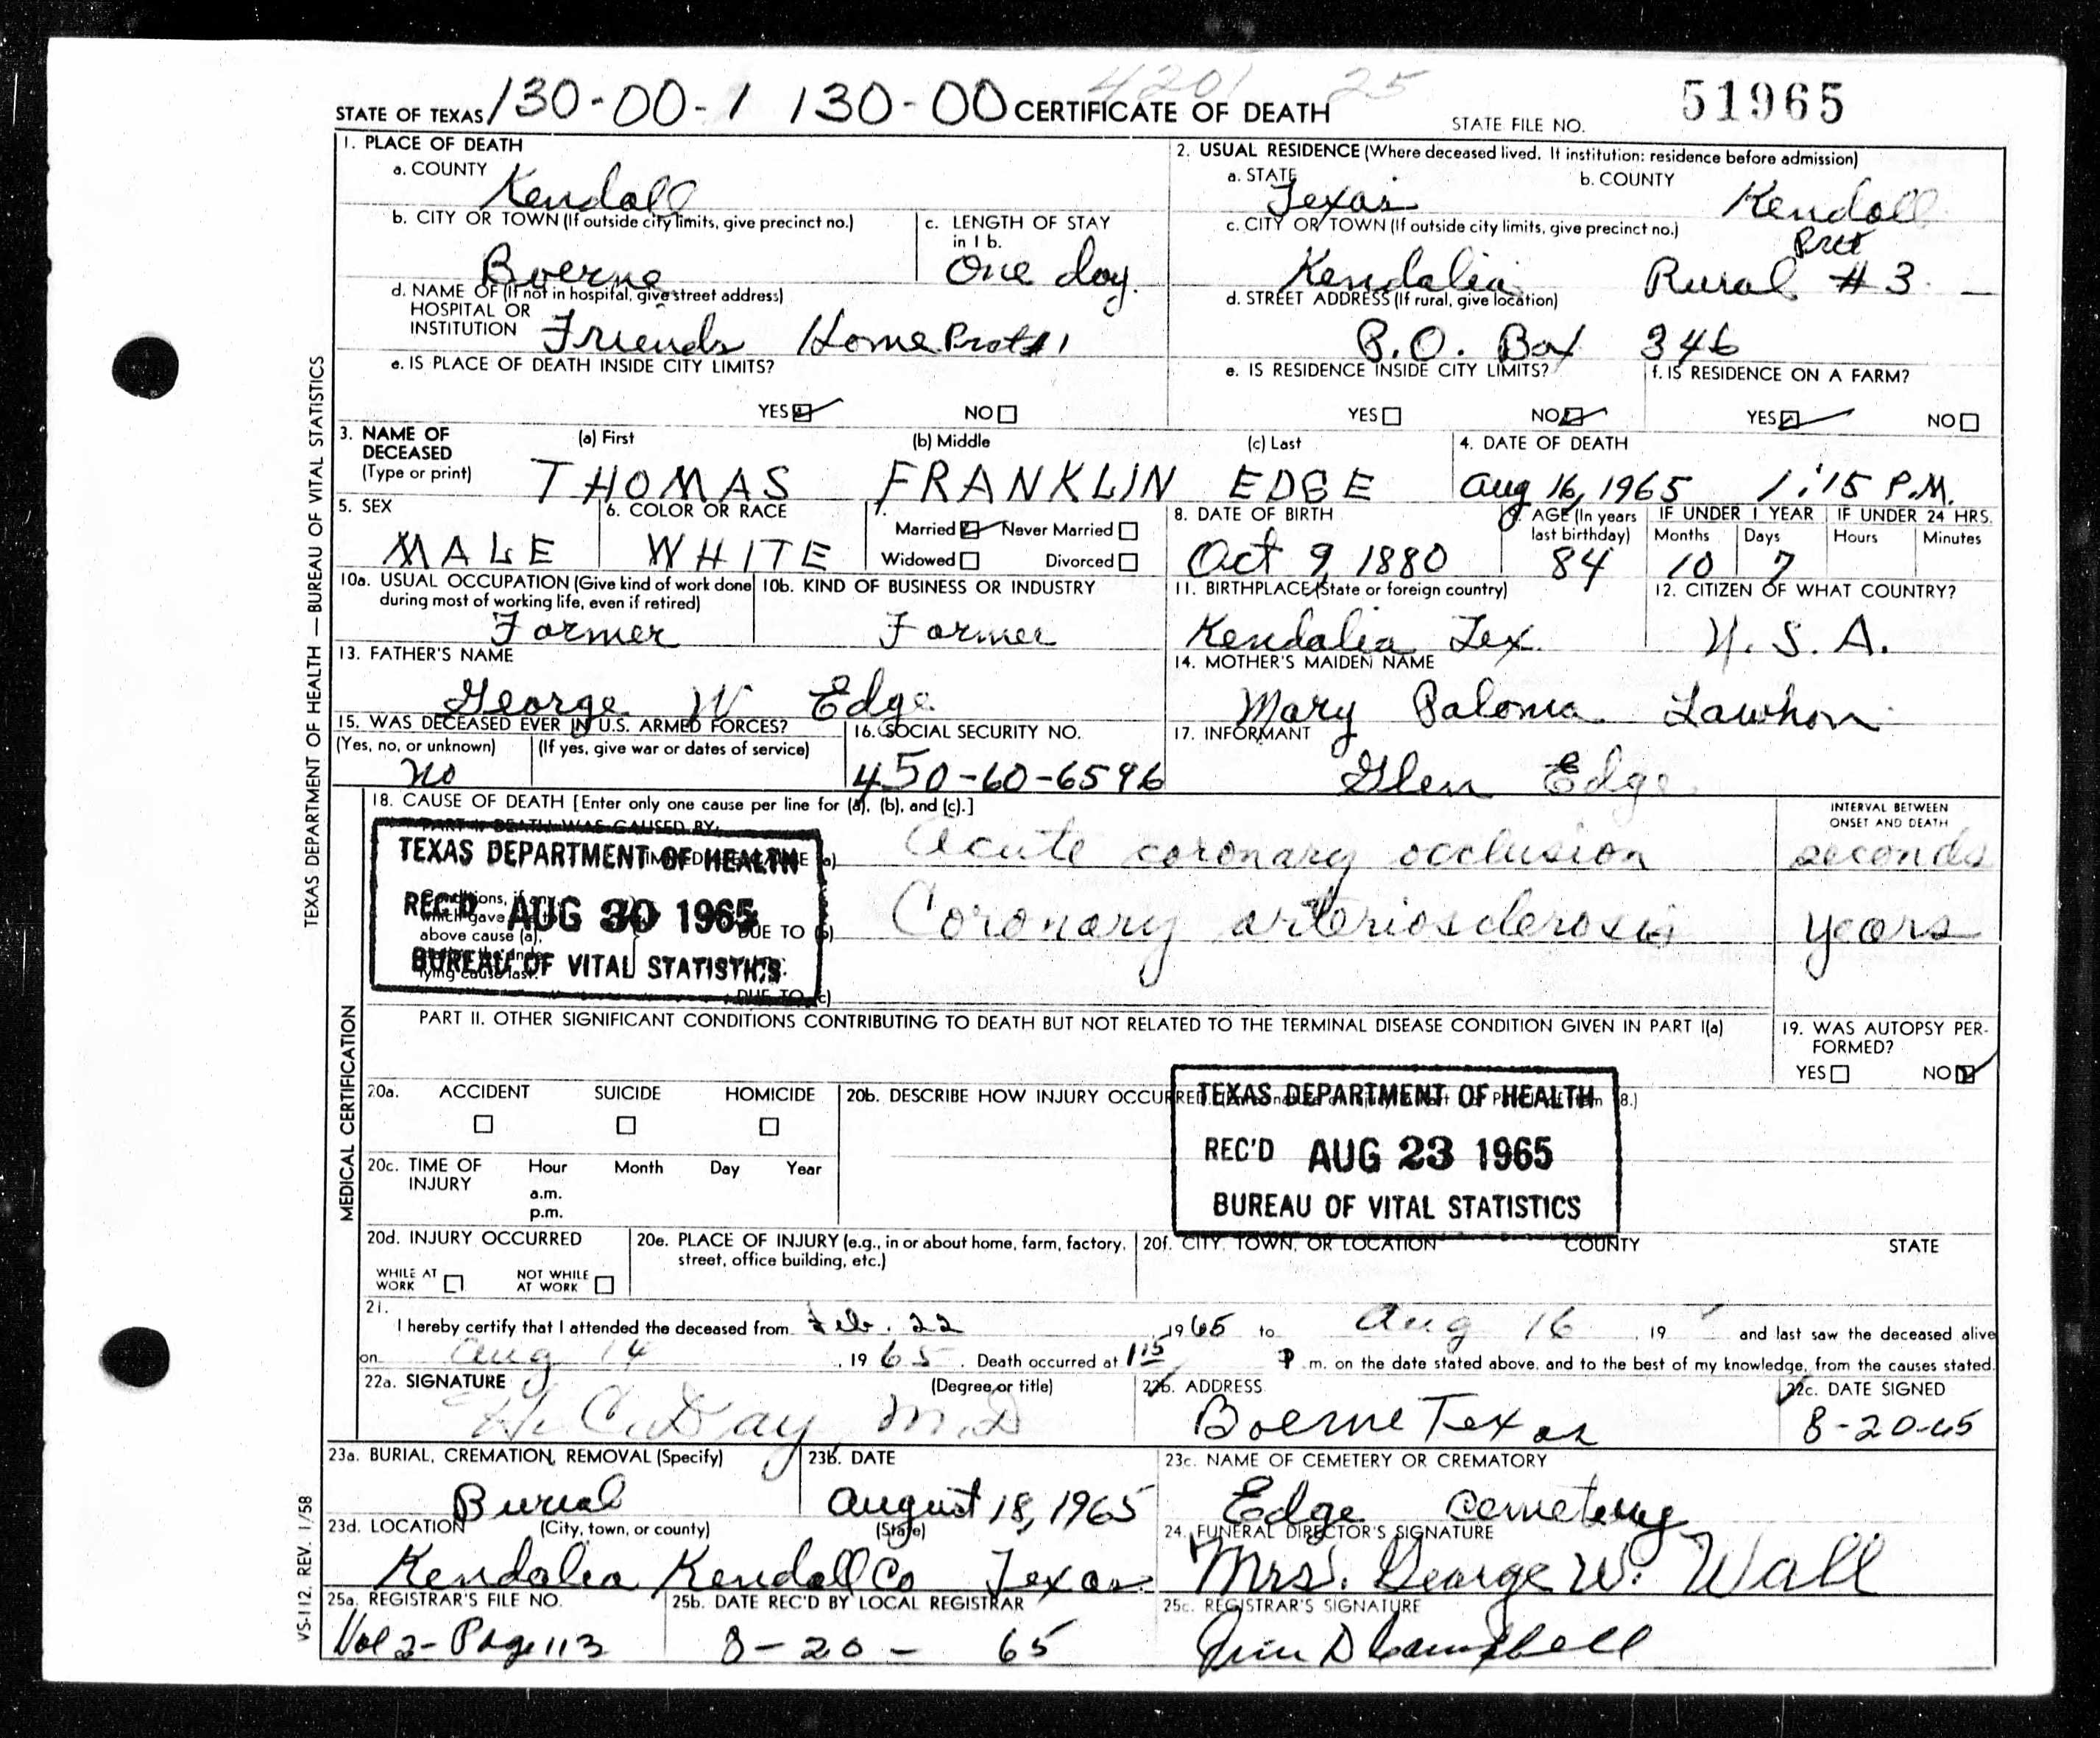 4201 25
STATE OF TEXAS 130-00-1 130-00 CERTIFICATE OF DEATH STATE FILE NO. 51965
1. PLACE OF DEATH
a. COUNTY Kendall
2. USUAL RESIDENCE (Where deceased lived. If institution: residence before admission)
a. STATE Texas b. COUNTY Kendall
b. CITY OR TOWN (If outside city limits, give precinct no.) Boerne
c. LENGTH OF STAY in 1 b. One day.
c. CITY OR TOWN (If outside city limits, give precinct no.) Kendalia Rural Prct #3
d. NAME OF (If not in hospital, give street address) HOSPITAL OR INSTITUTION Friends Home Prct #1
d. STREET ADDRESS (If rural, give location) P.O. Box 346
e. IS PLACE OF DEATH INSIDE CITY LIMITS?
YES NO
e. IS RESIDENCE INSIDE CITY LIMITS?
YES NO
f. IS RESIDENCE ON A FARM?
YES NO
3. NAME OF DECEASED (Type or print)
(a) First (b) Middle (c) Last
THOMAS FRANKLIN EDGE
4. DATE OF DEATH
Aug 16, 1965 1:15 P.M.
5. SEX MALE
6. COLOR OR RACE WHITE
7. Married Never Married
Widowed Divorced
8. DATE OF BIRTH Oct 9, 1880
9. AGE (In years last birthday) 84
IF UNDER 1 YEAR Months 10 Days 7
IF UNDER 24 HRS. Hours Minutes
10a. USUAL OCCUPATION (Give kind of work done during most of working life, even if retired) Farmer
10b. KIND OF BUSINESS OR INDUSTRY Farmer
11. BIRTHPLACE (State or foreign country) Kendalia Tex.
12. CITIZEN OF WHAT COUNTRY? U.S.A.
13. FATHER'S NAME George W Edge
14. MOTHER'S MAIDEN NAME Mary Paloma Lawhon
15. WAS DECEASED EVER IN U.S. ARMED FORCES?
(Yes, no, or unknown) (If yes, give war or dates of service)
No
16. SOCIAL SECURITY NO. 450-60-6596
17. INFORMANT Glen Edge
18. CAUSE OF DEATH [Enter only one cause per line for (a), (b), and (c).]
INTERVAL BETWEEN ONSET AND DEATH
PART I. DEATH WAS CAUSED BY:
(a) Acute coronary occlusion seconds
DUE TO (b) Coronary arteriosclerosis years
DUE TO (c)
TEXAS DEPARTMENT OF HEALTH
REC'D AUG 30 1965
BUREAU OF VITAL STATISTICS
PART II. OTHER SIGNIFICANT CONDITIONS CONTRIBUTING TO DEATH BUT NOT RELATED TO THE TERMINAL DISEASE CONDITION GIVEN IN PART I(a)
19. WAS AUTOPSY PERFORMED?
YES NO
20a. ACCIDENT SUICIDE HOMICIDE
20b. DESCRIBE HOW INJURY OCCURRED.
TEXAS DEPARTMENT OF HEALTH
REC'D AUG 23 1965
BUREAU OF VITAL STATISTICS
20c. TIME OF INJURY Hour Month Day Year
a.m.
p.m.
20d. INJURY OCCURRED
WHILE AT WORK NOT WHILE AT WORK
20e. PLACE OF INJURY (e.g., in or about home, farm, factory, street, office building, etc.)
20f. CITY, TOWN, OR LOCATION COUNTY STATE
21.
I hereby certify that I attended the deceased from Feb. 22 1965 to Aug 16, 19 and last saw the deceased alive
on Aug 14, 1965. Death occurred at 1:15 P.m. on the date stated above, and to the best of my knowledge, from the causes stated.
22a. SIGNATURE (Degree or title) H. C. Day M.D
22b. ADDRESS Boerne Texas
22c. DATE SIGNED 8-20-65
23a. BURIAL, CREMATION, REMOVAL (Specify) Burial
23b. DATE August 18, 1965
23c. NAME OF CEMETERY OR CREMATORY Edge cemetery
23d. LOCATION (City, town, or county) (State)
Kendalia Kendall Co Texas
24. FUNERAL DIRECTOR'S SIGNATURE Mrs. George W. Wall
25a. REGISTRAR'S FILE NO. Vol 2- Page 113
25b. DATE REC'D BY LOCAL REGISTRAR 8-20-65
25c. REGISTRAR'S SIGNATURE Jim D Campbell
TEXAS DEPARTMENT OF HEALTH — BUREAU OF VITAL STATISTICS
MEDICAL CERTIFICATION
VS-112. REV. 1/58